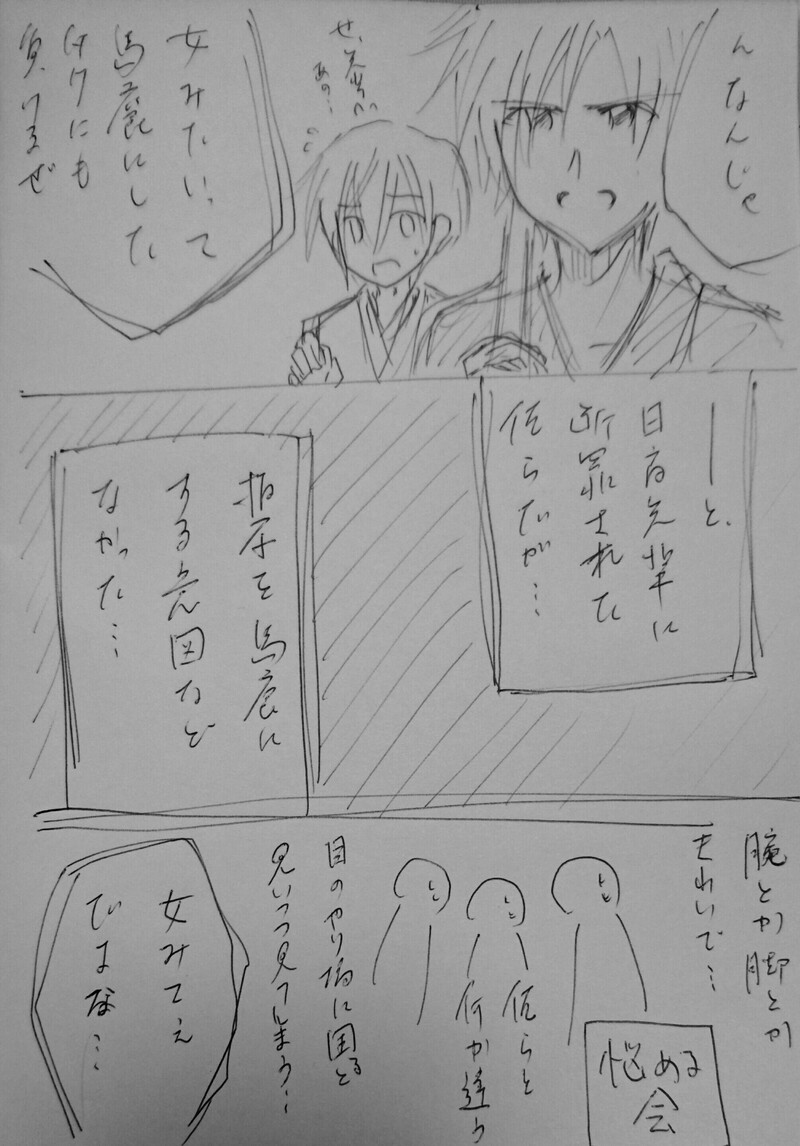 んなんじゃ
せ、先輩
あの…
女みたいって
馬鹿にした
ワケにも
負けるぜ
――と、
日高先輩に
断罪された
彼らだが…
相原を馬鹿に
する意図など
なかった…
腕とか脚とか
きれいで…
彼らと
何か違う
目のやり場に困ると
見いつつ見てしまう…
女みてえ
だよな…
悩める
会